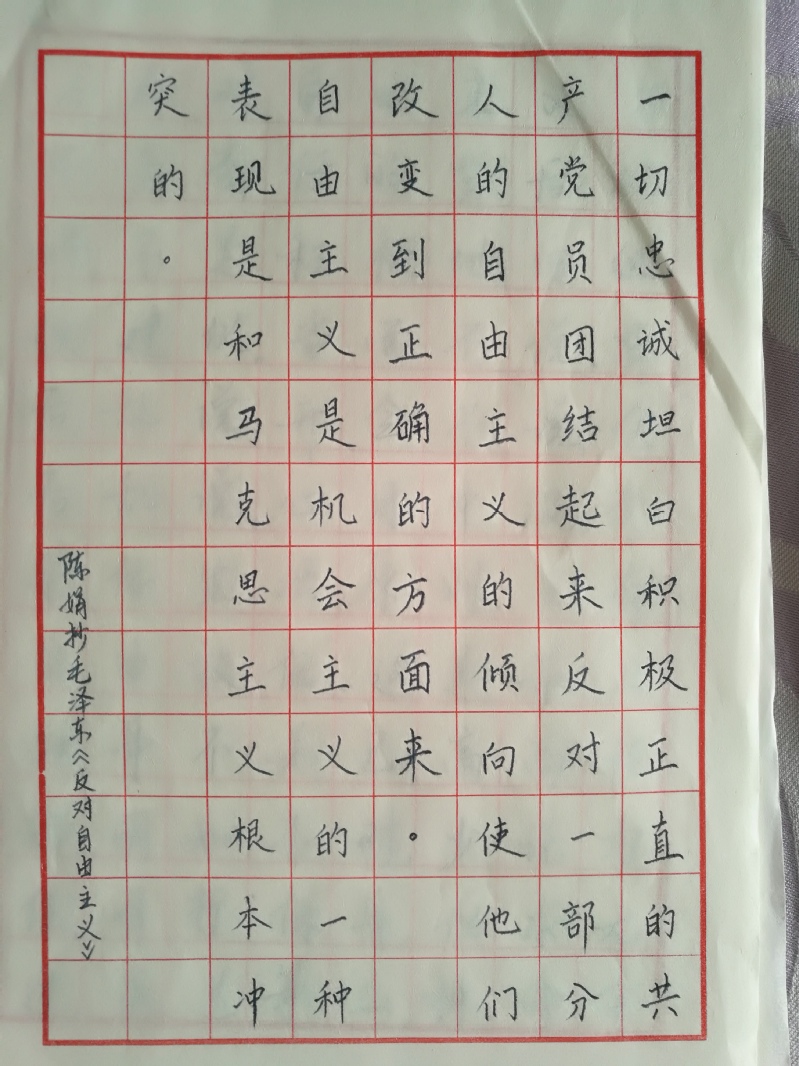 一切忠诚坦白积极正直的共
产党员团结起来反对一部分
人的自由主义的倾向使他们
改变到正确的方面来。
自由主义是机会主义的一种
表现是和马克思主义根本冲
突的。
陈娟抄毛泽东《反对自由主义》